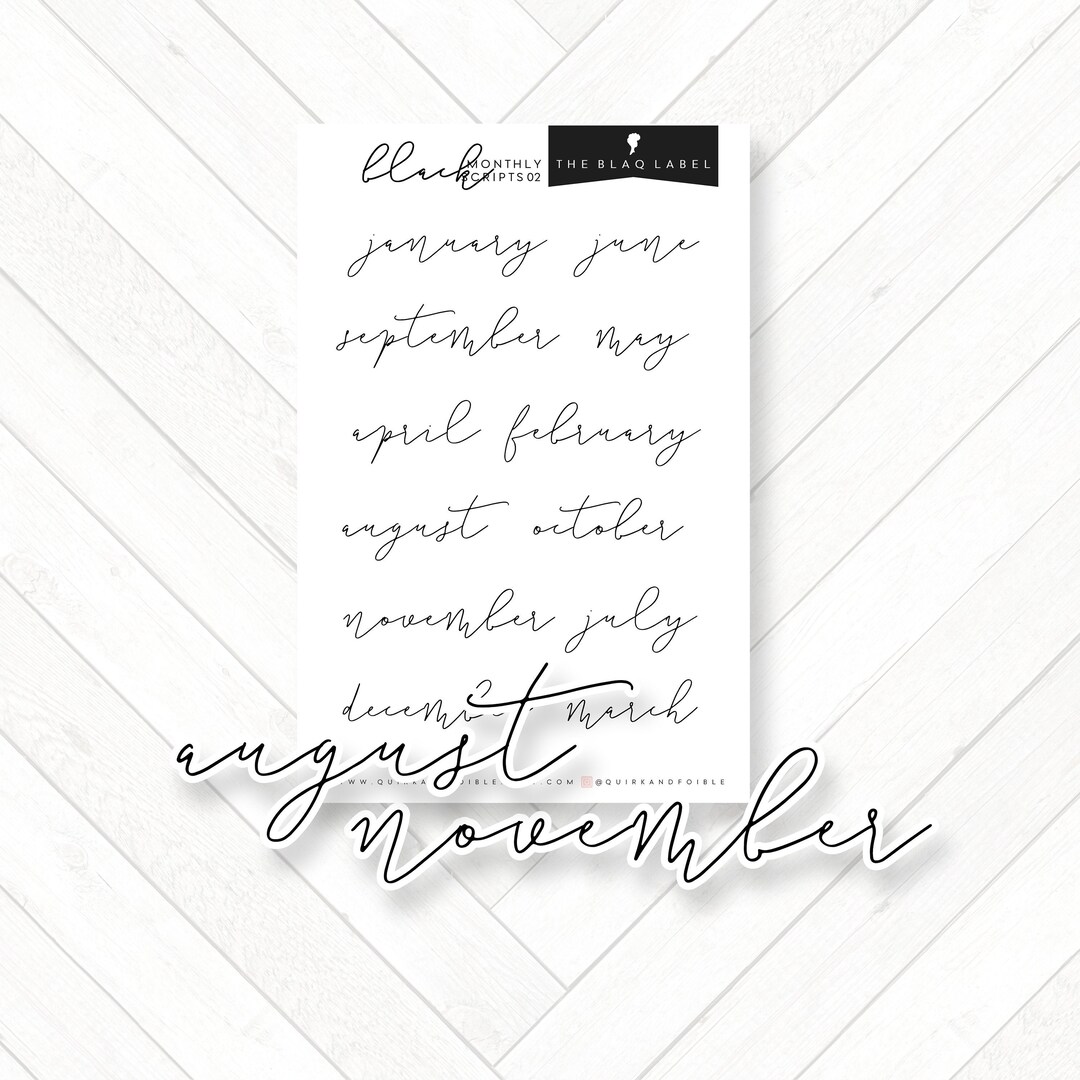 black MONTHLY SCRIPTS 02
THE BLAQ LABEL
january june
september may
april february
august october
november july
march
@QUIRKANDFOIBLE
august
november